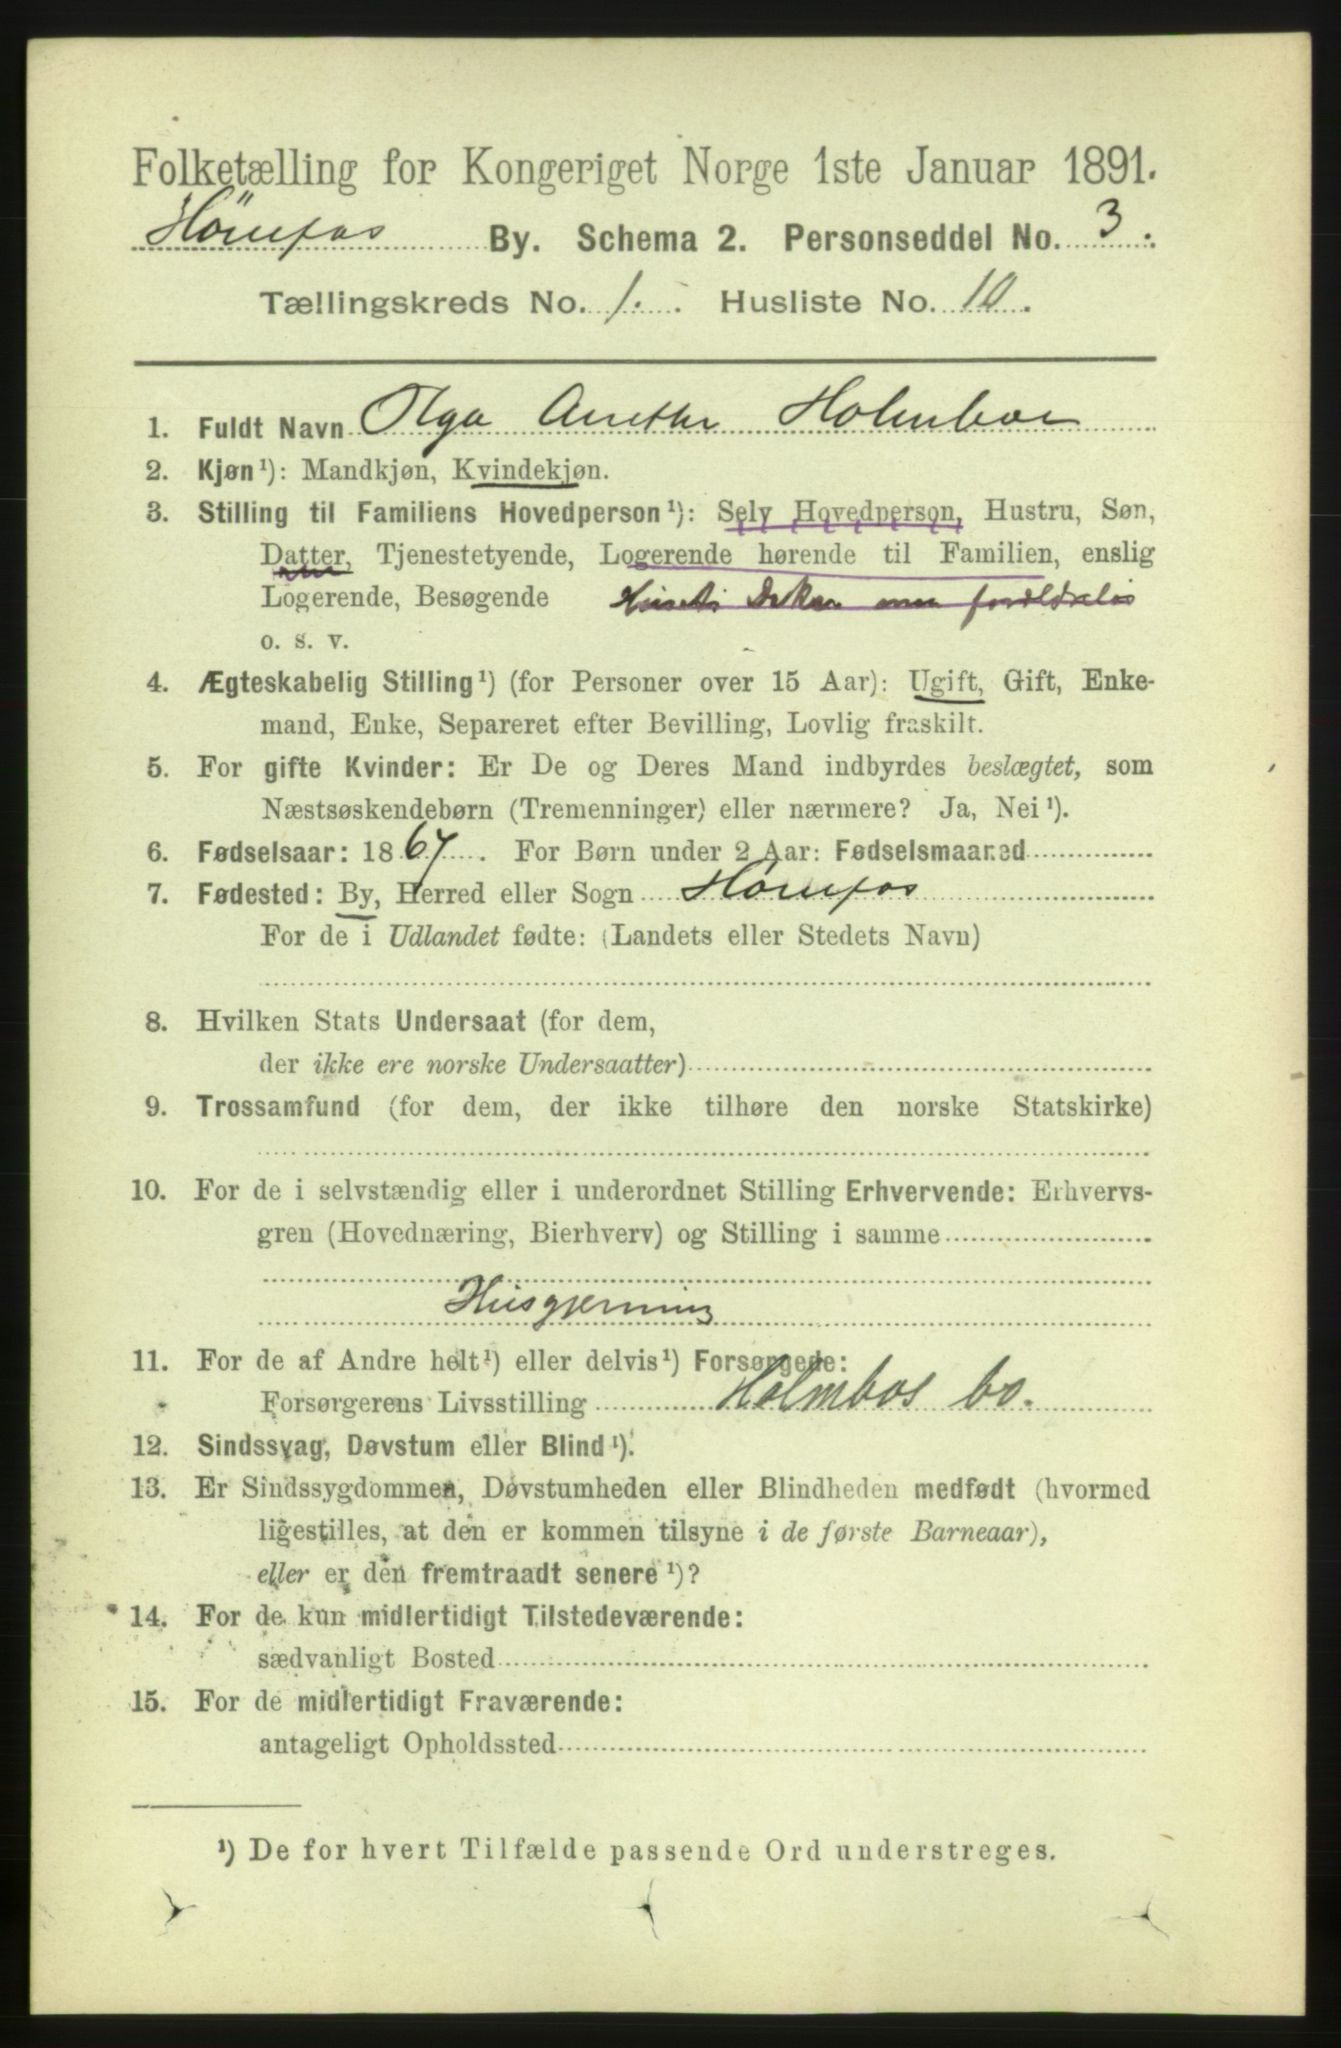 Folketælling for Kongeriget Norge 1ste Januar 1891.
Hönefos By. Schema 2. Personseddel No. 3.
Tællingskreds No. 1. Husliste No. 10.
1. Fuldt Navn Olga Anethe Holmboe
2. Kjøn¹): Mandkjøn, Kvindekjøn.
3. Stilling til Familiens Hovedperson¹): Selv Hovedperson, Hustru, Søn,
Datter, Tjenestetyende, Logerende hørende til Familien, enslig
Logerende, Besøgende Husets Datter men forældreløs
o. s. v.
4. Ægteskabelig Stilling¹) (for Personer over 15 Aar): Ugift, Gift, Enke-
mand, Enke, Separeret efter Bevilling, Lovlig fraskilt.
5. For gifte Kvinder: Er De og Deres Mand indbyrdes beslægtet, som
Næstsøskendebørn (Tremenninger) eller nærmere? Ja, Nei¹).
6. Fødselsaar: 1867. For Børn under 2 Aar: Fødselsmaaned
7. Fødested: By, Herred eller Sogn Hönefos
For de i Udlandet fødte: (Landets eller Stedets Navn)
8. Hvilken Stats Undersaat (for dem,
der ikke ere norske Undersaatter)
9. Trossamfund (for dem, der ikke tilhøre den norske Statskirke)
10. For de i selvstændig eller i underordnet Stilling Erhvervende: Erhvervs-
gren (Hovednæring, Bierhverv) og Stilling i samme
Husgjerning
11. For de af Andre helt¹) eller delvis¹) Forsørgede:
Forsørgerens Livsstilling Holmbos bo.
12. Sindssvag, Døvstum eller Blind¹).
13. Er Sindssygdommen, Døvstumheden eller Blindheden medfødt (hvormed
ligestilles, at den er kommen tilsyne i de første Barneaar),
eller er den fremtraadt senere¹)?
14. For de kun midlertidigt Tilstedeværende:
sædvanligt Bosted
15. For de midlertidigt Fraværende:
antageligt Opholdssted
¹) De for hvert Tilfælde passende Ord understreges.